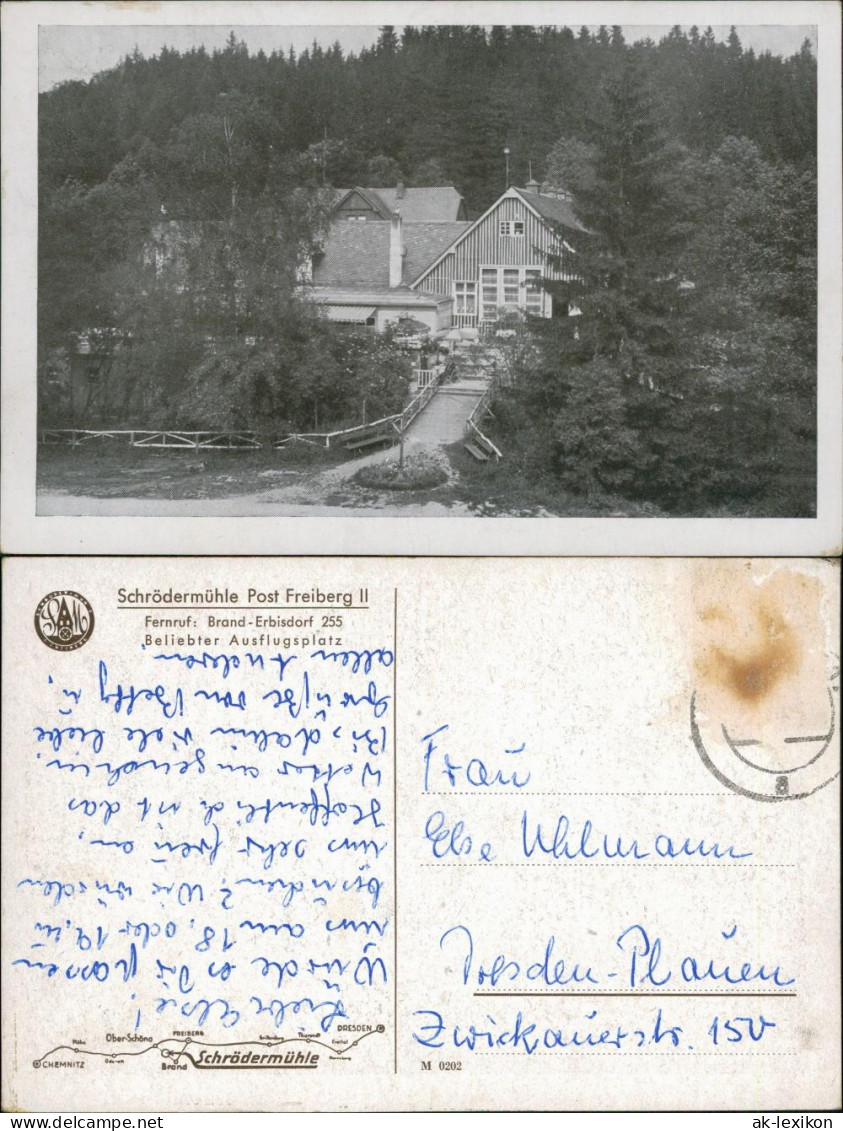 Schrödermühle Post Freiberg II
Fernruf: Brand-Erbisdorf 255
Beliebter Ausflugsplatz
Liebe Else!
Würde es Dir passen
uns am 18. oder 19. zu
besuchen? Wir würden
uns sehr freuen,
Hoffentlich ist das
Wetter angenehm.
Bis dahin viele liebe
Grüße von Betty u.
allen Anderen
Frau
Else Uhlmann
Dresden-Plauen
Zwickauerstr. 150
CHEMNITZ
Flöha
Ober-Schöna
FREIBERG
Brand
Schrödermühle
Tharandt
DRESDEN
M 0202
8
www.ansichtskarten-lexikon.de
ak-lexikon